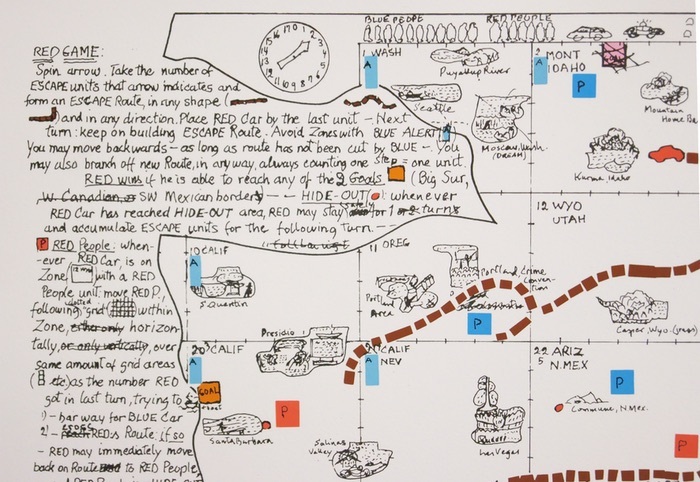 BLUE PEOPE
RED PEOPLE
12 1 2 3 4 5 6 7 8 9 10 11
RED GAME:
Spin arrow. Take the number of
ESCAPE units that arrow indicates and
form an ESCAPE Route, in any shape (
) and in any direction. Place RED Car by the last unit – Next
turn: keep on building ESCAPE Route. Avoid Zones with BLUE ALERT A
You may move backwards – as long as route has not been cut by BLUE – You
may also branch off new Route, in any way, always counting one step = one unit.
RED wins if he is able to reach any of the 2 Goals (Big Sur,
W. Canadian, or SW Mexican border) – – HIDE-OUT ( ): whenever
RED Car has reached HIDE-OUT area, RED may stay safely for 1 or 2 turns
and accumulate ESCAPE units for the following turn. – –
P RED People: when-
-ever RED Car, is on
Zone, with a RED
People unit, move RED P.,
following dotted grid within
Zone, either only horizon-
tally, or only vertically, over
same amount of grid areas
( etc) as the number RED
got in last turn, trying to
1'– bar way for BLUE Car
2'– cross REDs Route: if so
– RED may immediately move
back on Route to RED People
1 WASH
A
Puyallup River
Seattle
2 MONT
IDAHO
A
P
Mountain
Home
Kuna, Idaho
12 WYO
UTAH
10 CALIF
A
S. Quentin
11 OREG
Portland
Area
Portland Crime
Conven-
tion
P
Casper, Wyo.
Presidio
20 CALIF
A
GOAL
P
Santa Barbara
CALIF
NEV
A
Salinas
Valley
Las Vegas
22 ARIZ
N. MEX
P
Commune, N. Mex.
P